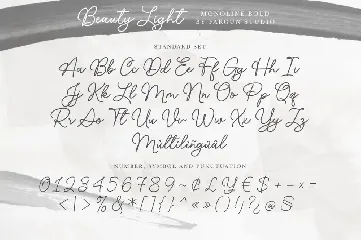 Beauty Light
MONOLINE BOLD
BY FARGUN STUDIO
STANDARD SET
Aa Bb Cc Dd Ee Ff Gg Hh Ii
Jj Kk Ll Mm Nn Oo Pp Qq
Rr Ss Tt Uu Vv Ww Xx Yy Zz
Mùltilìngùàl
NUMBER, SYMBOL AND PUNCTUATION
0123456789~¢£¥€$+-×=
<|>%&*[]{}^«»()!?¿@§